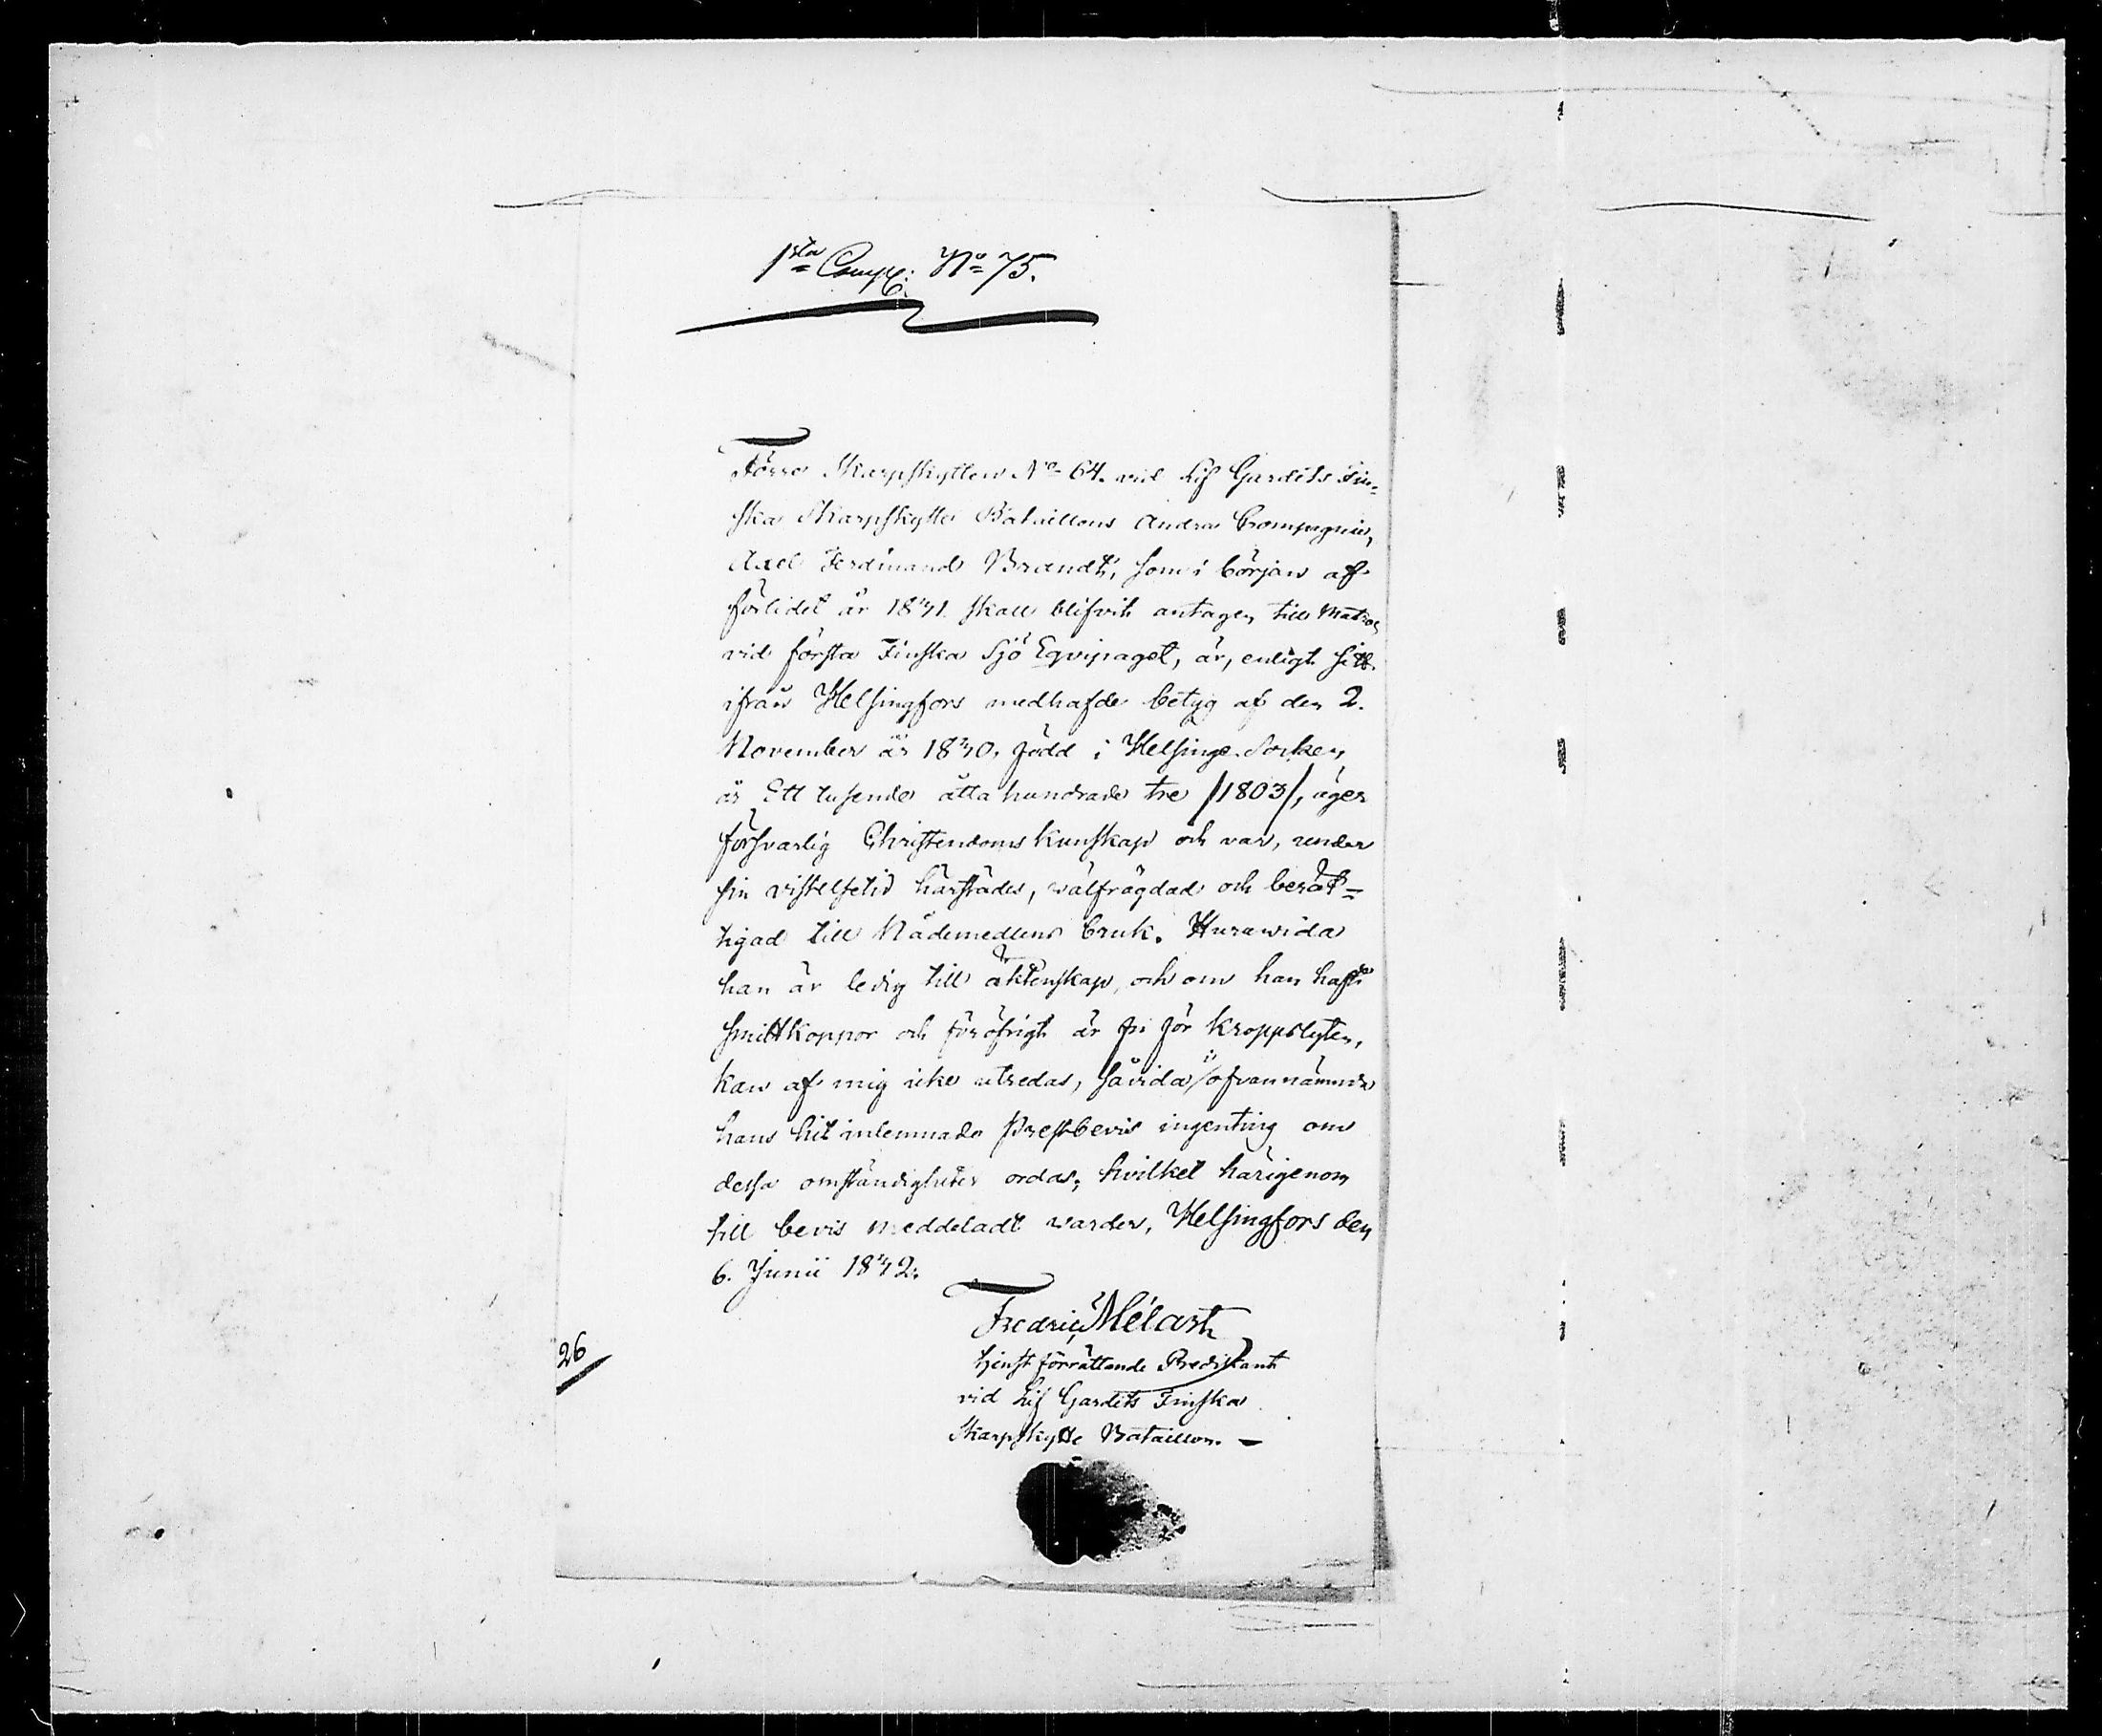 1sta Comp: No 75.
Förre Skarpskytten No 64. vid Lif Gardets Fin-
ska Skarpskytte Bataillons Andra Compagnie,
Axel Ferdinand Brandt, som i början af
förlidet år 1841 skall blifvit antagen till Matros
vid första Finska Sjö Eqvipaget, är, enligt sitt
ifrån Helsingfors medhafde betyg af den 2.
November år 1840, född i Helsinge Socken,
år Ett tusende åtta hundrade tre /1803/, äger
försvarlig Christendoms kunskap och var, under
sin vistelsetid härstädes, wälfrägdad och berät-
tigad till Nådemedlens bruk. Hurawida
han är ledig till äktenskap, och om han haft
smittkoppor och för öfrigt är fri för kroppslyten,
kan af mig icke utredas, såvida i ofvannämnde
hans hit inlemnade Prestbevis ingenting om
dessa omständigheter ordas; hvilket härigenom
till bevis meddeladt warder, Helsingfors den
6. Junii 1842.
Fredric Mélart
tjenst förrättande Predikant
vid Lif Gardets Finska
Skarpskytte Bataillon. -
26